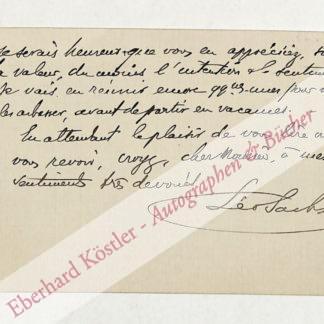 Je serais heureux que vous en appréciez, 
la valeur, du moins l'intention & le sentim
Je vais en réunir encore 99
avant de partir en vacances.
En attendant le plaisir de vous
vous revoir, croyez, cher Monsieur, à mes
sentiments très dévoués.
Léo Sachs
Eberhard Köstler - Autographen & Bücher